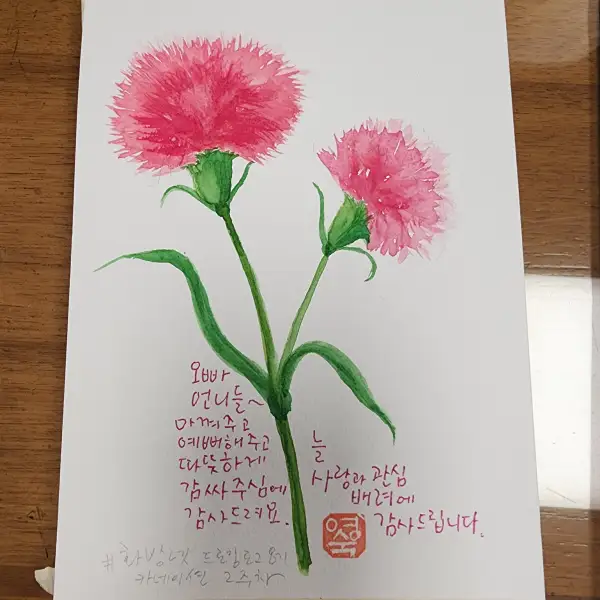 오빠
언니들~
아껴주고
예뻐해주고
따뜻하게
감싸주심에
감사드려요.
늘
사랑과 관심
배려에
감사드립니다.
카네이션 2주차